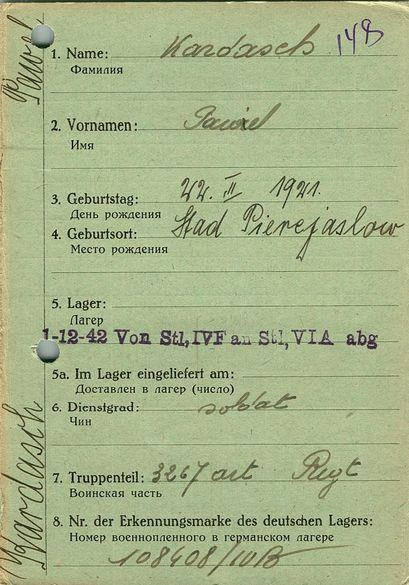 148
1. Name: Kardasch
Фамилия
2. Vornamen: Pawel
Имя
3. Geburtstag: 22. II 1921.
День рождения
4. Geburtsort: Stad Pierejaslow
Место рождения
5. Lager:
Лагерь
1-12-42 Von Stl,IVF an Stl,VIA abg
5a. Im Lager eingeliefert am:
Доставлен в лагерь (число)
6. Dienstgrad: soldat
Чин
7. Truppenteil: 3267 art Regt
Воинская часть
8. Nr. der Erkennungsmarke des deutschen Lagers:
Номер военнопленного в германском лагере
108408/IVB
Kardasch Pawel